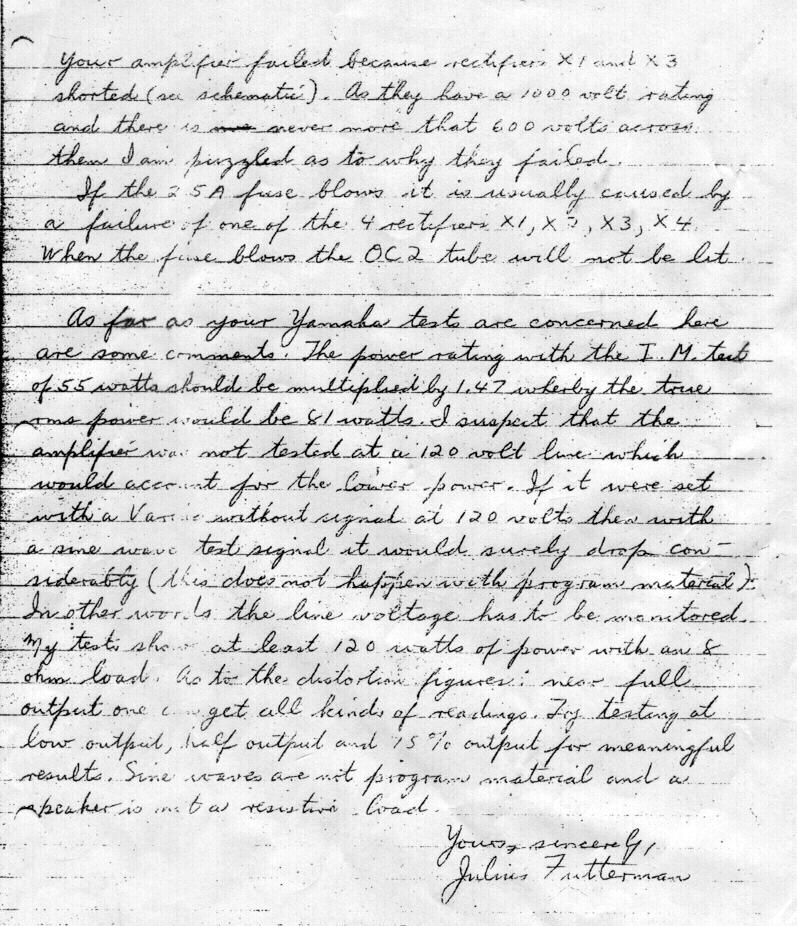 Your amplifier failed because rectifiers X1 and X3
shorted (see schematic). As they have a 1000 volt rating
and there is never more that 600 volts across
them I am puzzled as to why they failed.
If the 2.5A fuse blows it is usually caused by
a failure of one of the 4 rectifiers X1, X2, X3, X4.
When the fuse blows the OC2 tube will not be lit.
As far as your Yamaha tests are concerned here
are some comments. The power rating with the I.M. test
of 55 watts should be multiplied by 1.47 wherby the true
rms power would be 81 watts. I suspect that the
amplifier was not tested at a 120 volt line which
would account for the lower power. If it were set
with a Variac without signal at 120 volts then with
a sine wave test signal it would surely drop con-
siderably (this does not happen with program material).
In other words the line voltage has to be monitored.
My tests show at least 120 watts of power with an 8
ohm load. As to the distortion figures: near full
output one can get all kinds of readings. Try testing at
low output, half output and 75% output for meaningful
results. Sine waves are not program material and a
speaker is not a resistive load.
Yours, sincerely,
Julius Futterman